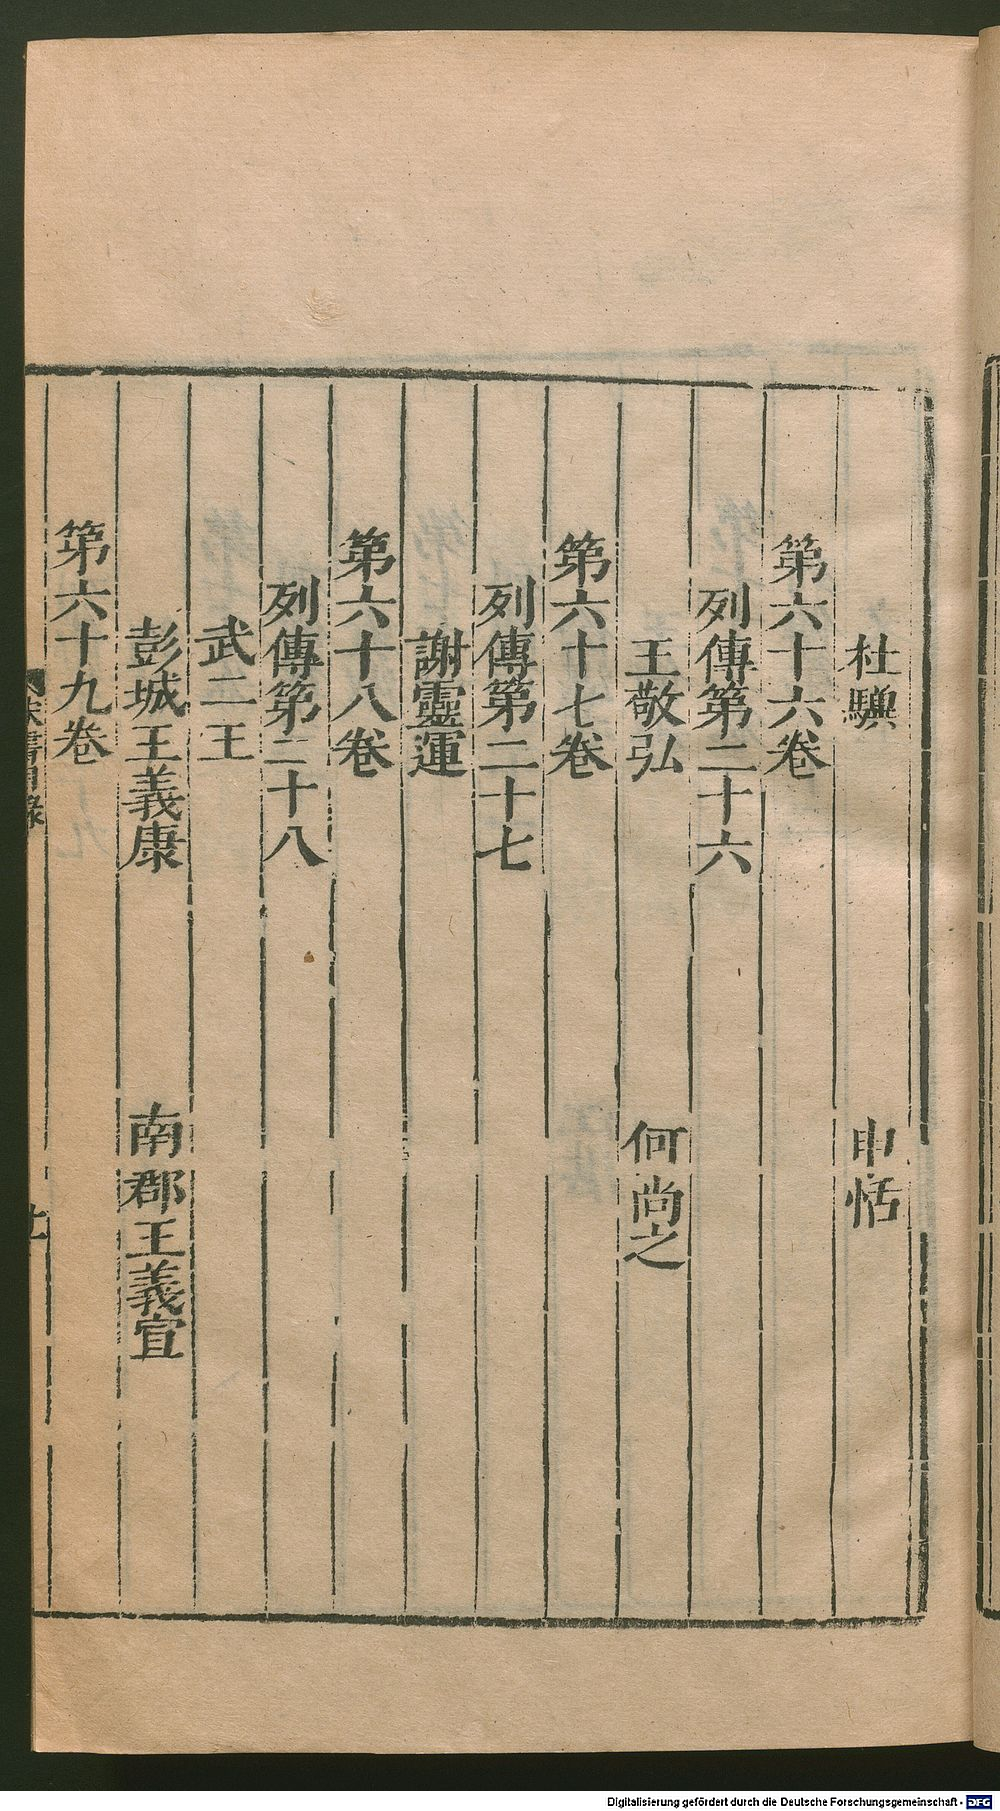 杜驥　申恬
第六十六卷
列傳第二十六
王敬弘　何尚之
第六十七卷
列傳第二十七
謝靈運
第六十八卷
列傳第二十八
武二王
彭城王義康　南郡王義宣
第六十九卷
書目錄
Digitalisierung gefördert durch die Deutsche Forschungsgemeinschaft - DFG